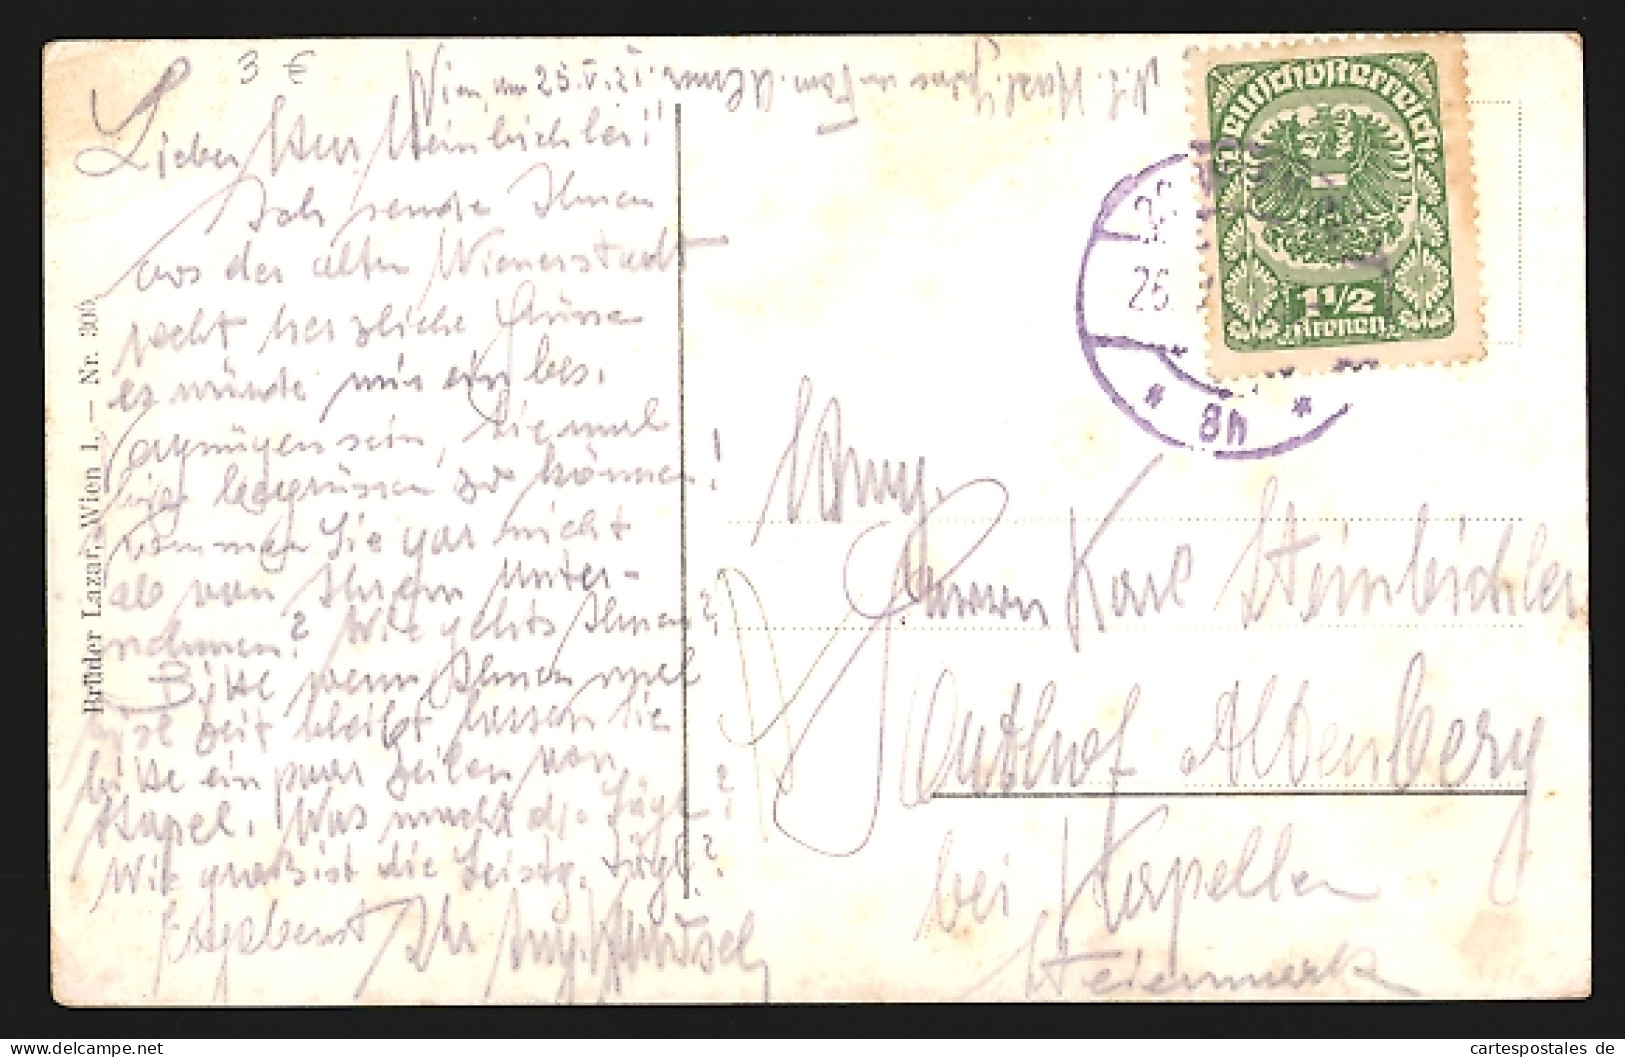 3 €
Wien, am 25.V.21.
Lieber Herr Steinbichler!
Ich sende Ihnen
aus der alten Wienerstadt
recht herzliche Grüsse
es würde mir ein bes.
Vergnügen sein, Sie mal
hier begrüssen zu können!
kommen Sie gar nicht
ab von Ihrem Unter-
nehmen? Wie gehts Ihnen?
Bitte wenn Ihnen viel
Zeit bleibt lassen Sie
bitte ein paar Zeilen von
Stapel. Was macht die Säge?
Wie groß ist die Leistg. tägl.?
Ergebenst Ihr Ing.
Brüder Lazar, Wien 1. — Nr. 300
Deutschösterreich
1 1/2
Kronen
26.
* 8h *
Herrn Karl Steinbichler
Gutshof Altenberg
bei Kapellen
Steiermark
www.delcampe.net
cartespostales de